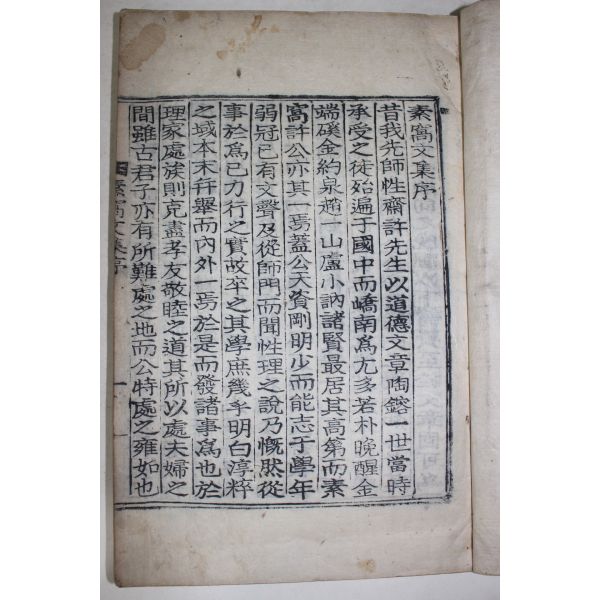 素窩文集序
昔我先師性齋許先生以道德文章陶鎔一世當時
承受之徒始遍于國中而嶠南爲尤多若朴晩醒金
端磎金約泉趙一山盧小訥諸賢最居其高第而素
窩許公亦其一焉蓋公天資剛明少而能志于學年
弱冠已有文聲及從師門而聞性理之說乃慨然從
事於爲己力行之實故卒之其學庶幾乎明白淳粹
之域本末幷舉而內外一焉於是而發諸事爲也於
理家處族則克盡孝友敬睦之道其所以處夫婦之
間雖古君子亦有所難處之地而公特處之雍如也
素窩文集序
一